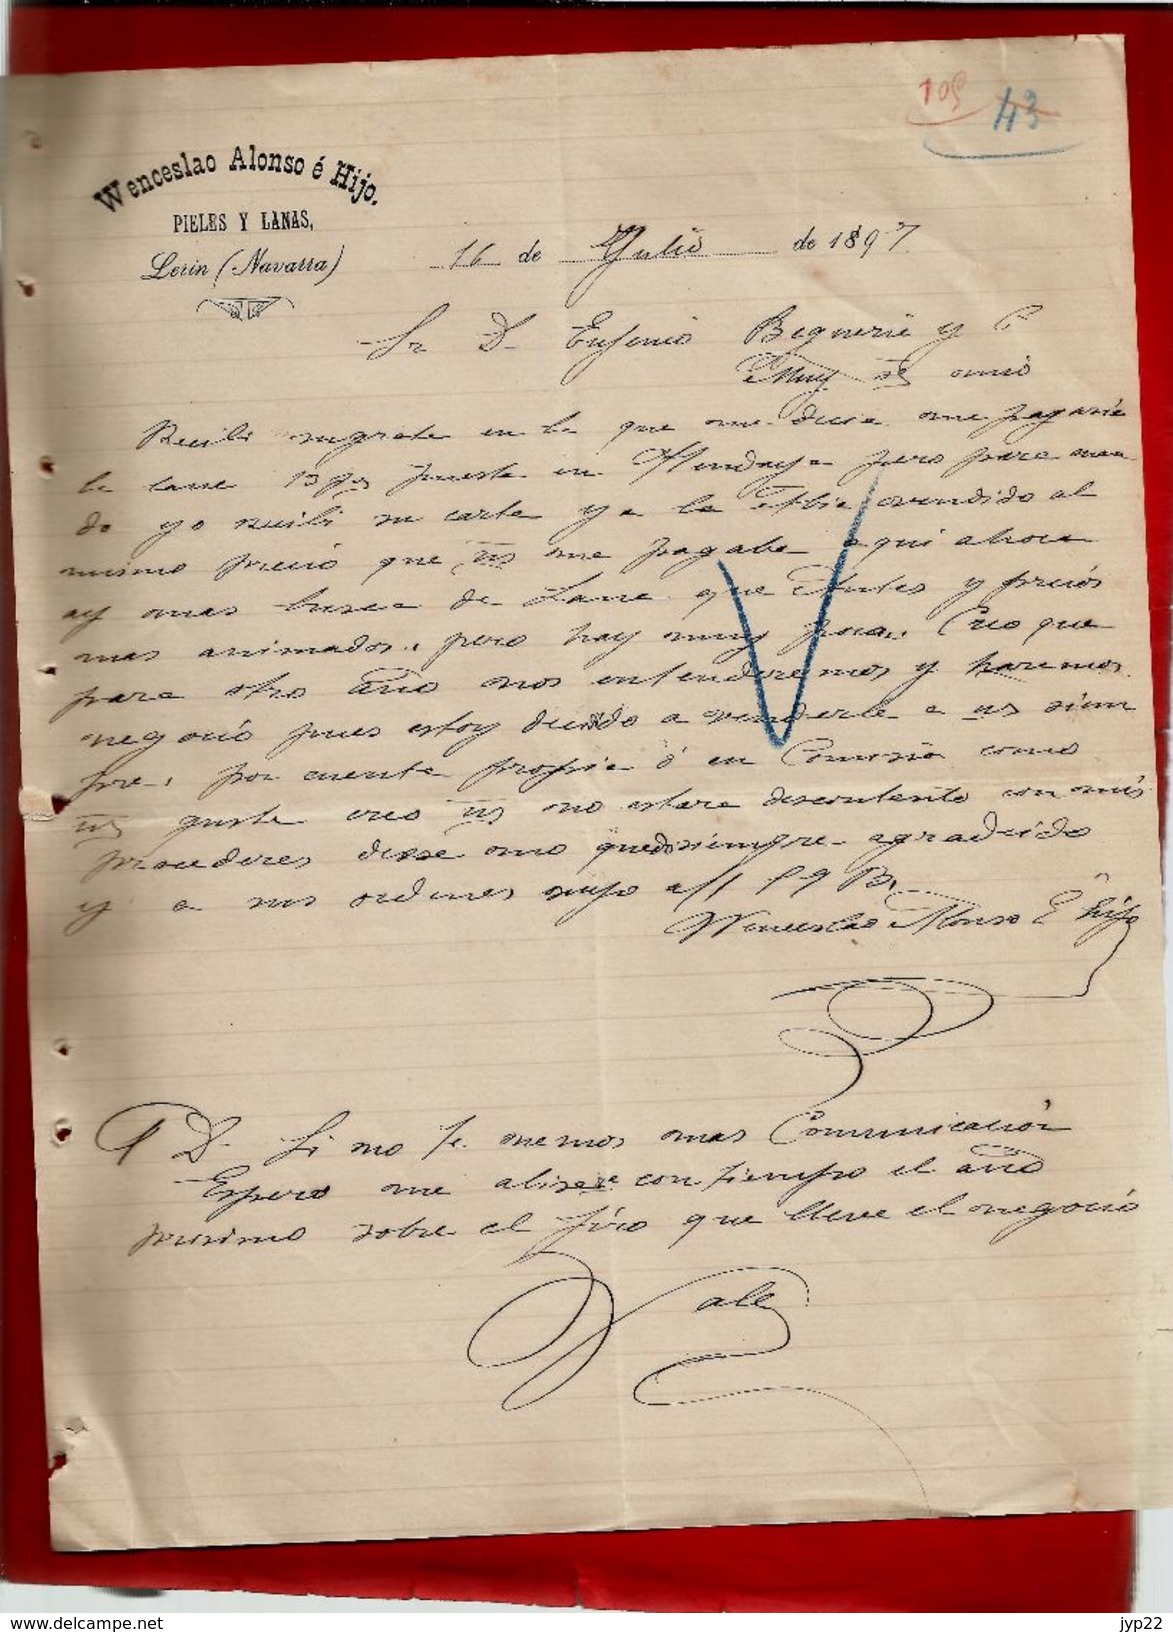 105 43
Wenceslao Alonso é Hijo.
PIELES Y LANAS,
Lerin (Navarra)
16 de Julio de 1897
Sr D. Eugenio Beguerie y C
Muy Sr mio
Recibi su grata en la que me dice me pagaria
la lana 13 p puesta en Hendaya pero para cuan
do yo recibi su carta ya la abia vendido al
mismo precio que us me pagaba aqui ahora
ay mas busca de Lana que Antes y precios
mas animados, pero hay muy poca. Creo que
para otro Año nos entenderemos y haremos
negocio pues estoy decidido a venderle a us siem
pre, por cuenta propia ó en Comision como
us guste creo us no estara descontento con mis
procederes desse mo quedo siempre agradecido
y a sus ordenes suyo af q B.
Wenceslao Alonso É hijo
P D. Si no te nemos mas Comunicación
Espero me alisara con tiempo el año
procsimo sobre el jiro que lleve el negocio
Vale
www.delcampe.net
jyp22